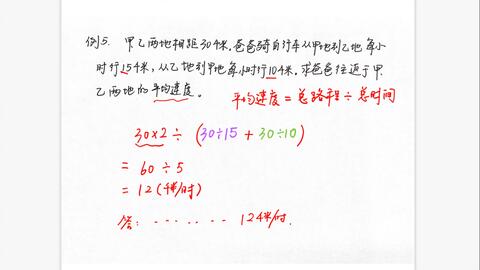 例5. 甲乙两地相距30千米.爸爸骑自行车从甲地到乙地每小
时行15千米,从乙地到甲地每小时行10千米.求爸爸往返于甲.
乙两地的平均速度。
平均速度=总路程÷总时间
30×2÷(30÷15+30÷10)
=60÷5
=12(千米/时)
答:········12千米/时.